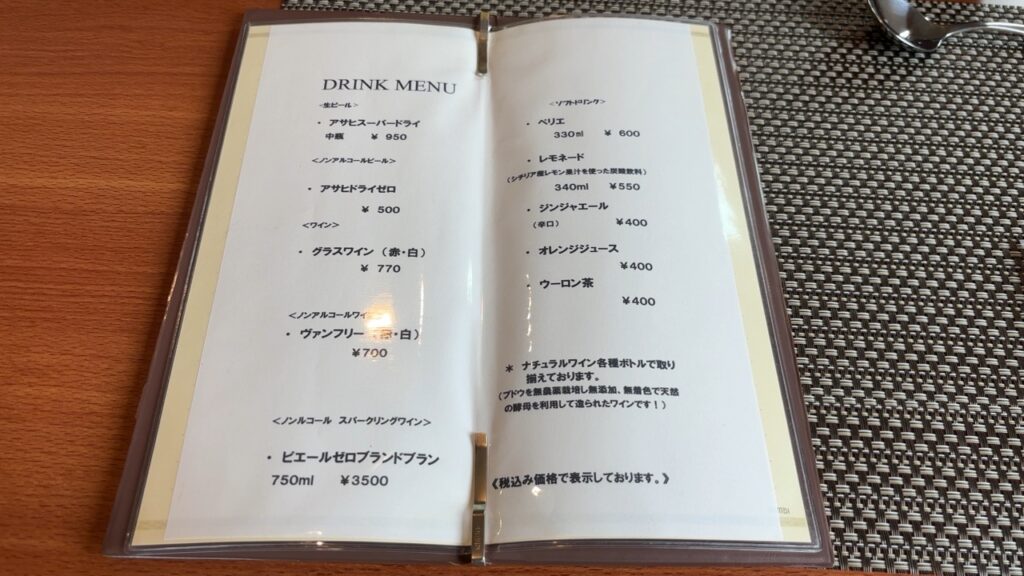 DRINK MENU
<生ビール>
・ アサヒスーパードライ
中瓶 ¥ 950
<ノンアルコールビール>
・ アサヒドライゼロ
¥ 500
<ワイン>
・ グラスワイン (赤・白)
¥ 770
<ノンアルコールワイ
・ ヴァンフリー ( ・白)
¥700
<ノンルコール スパークリングワイン>
・ ピエールゼロブランドブラン
750ml ¥3500
<ソフトドリンク>
・ ペリエ
330ml ¥ 600
・ レモネード
(シチリア産レモン果汁を使った炭酸飲料)
340ml ¥550
・ ジンジャエール
(辛口) ¥400
・ オレンジジュース
¥400
・ ウーロン茶
¥400
* ナチュラルワイン各種ボトルで取り
揃えております。
(ブドウを無農薬栽培し無添加、無着色で天然
の酵母を利用して造られたワインです!)
《税込み価格で表示しております。》